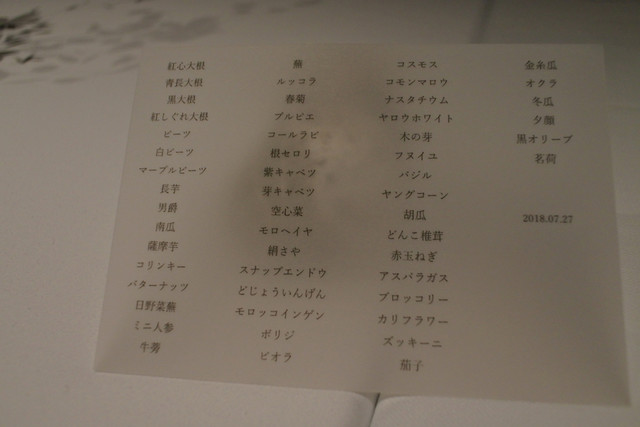 紅心大根
青長大根
黒大根
紅しぐれ大根
ビーツ
白ビーツ
マーブルビーツ
長芋
男爵
南瓜
薩摩芋
コリンキー
バターナッツ
日野菜蕪
ミニ人参
牛蒡
蕪
ルッコラ
春菊
プルピエ
コールラビ
根セロリ
紫キャベツ
芽キャベツ
空心菜
モロヘイヤ
絹さや
スナップエンドウ
どじょういんげん
モロッコインゲン
ボリジ
ビオラ
コスモス
コモンマロウ
ナスタチウム
ヤロウホワイト
木の芽
フヌイユ
バジル
ヤングコーン
胡瓜
どんこ椎茸
赤玉ねぎ
アスパラガス
ブロッコリー
カリフラワー
ズッキーニ
茄子
金糸瓜
オクラ
冬瓜
夕顔
黒オリーブ
茗荷
2018.07.27